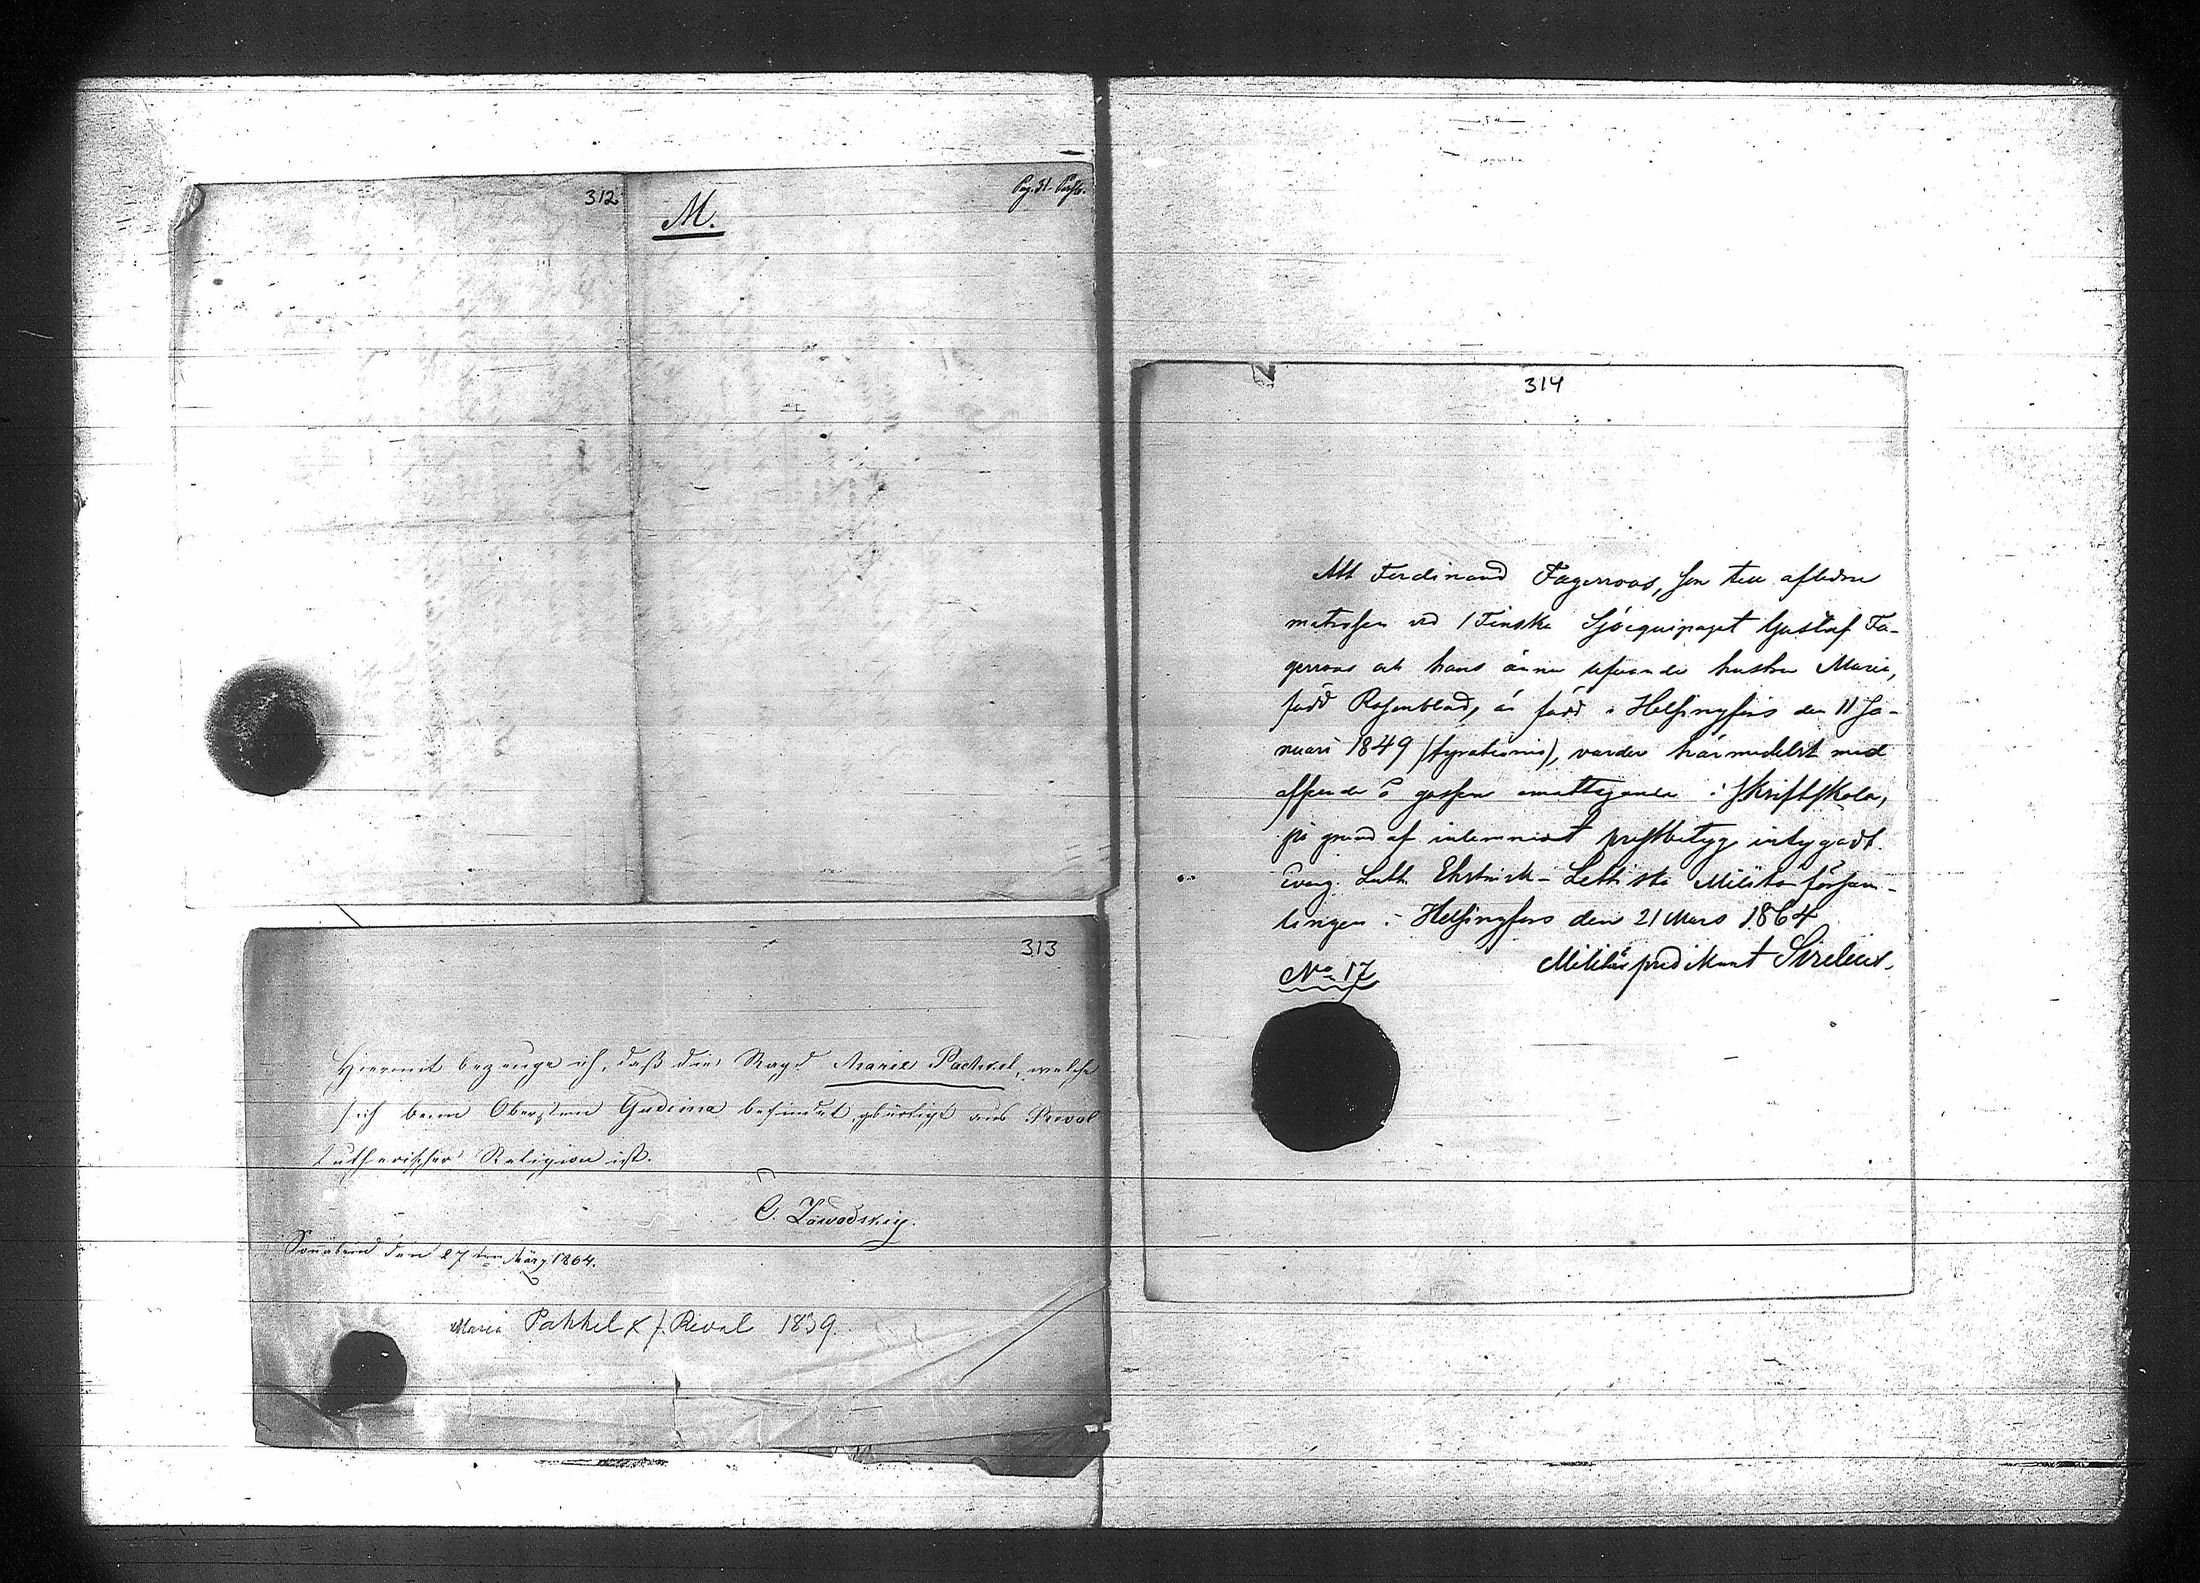 312
M.
Pag. 31.
313
Hiermit bezeuge ich, daß die Magd Marie Pachkel, welche
sich beim Obersten Gudima befindet, gebürtigt aus Reval
Lutherischer Religion ist.
C. Zawadskiy.
Sonabend den 27ten März 1864.
Maria Pahkel x f. Reval 1839.
314
Att Ferdinand Fagerroos, son till aflidne
matrosen vid 1 Finska Sjöequipaget Gustaf Fa-
gerroos och hans ännu lefvande hustru Maria,
född Rosenblad, är född i Helsingfors den 11 Ja-
nuari 1849 (fyrationio), varder härmedelst med
afseende å gossens emottagande i skriftskola,
på grund af inlemnadt prestbetyg intygadt.
Evang. Luth. Ehstnisk-Lettiska Militärförsam-
lingen i Helsingfors den 21 Mars 1864
Militärpredikant Sirelius.
No 17